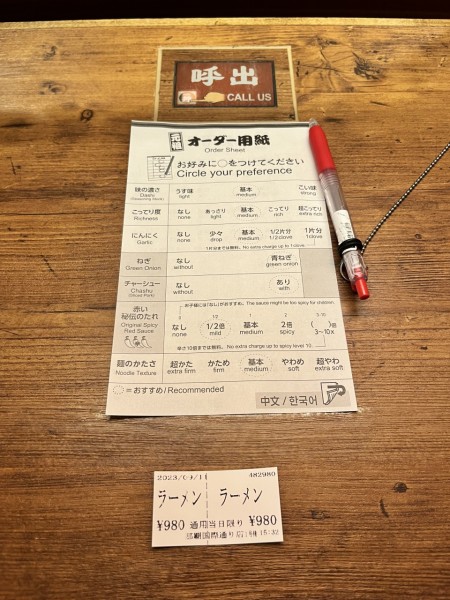 呼出
CALL US
元祖 オーダー用紙
Order Sheet
お好みに◯をつけてください
Circle your preference
味の濃さ うす味 基本 こい味
Dashi light medium strong
こってり度 なし あっさり 基本 こってり 超こってり
Richness none light medium rich extra rich
にんにく なし 少々 基本 1/2片分 1片分
Garlic none drop medium 1/2 clove 1 clove
1片分までは無料。No extra charge up to 1 clove.
ねぎ なし 青ねぎ
Green Onion without green onion
チャーシュー なし あり
Chashu without with
(Sliced Pork)
お子様には「なし」がおすすめ。The sauce might be too spicy for children.
赤い
秘伝のたれ なし 1/2倍 基本 2倍 ( )倍
Original Spicy none mild medium spicy 3~10x
Red Sauce
辛さ10倍までは無料。No extra charge up to spicy level 10.
麺のかたさ 超かた かため 基本 やわめ 超やわ
Noodle Texture extra firm firm medium soft extra soft
=おすすめ/Recommended
中文 / 한국어
482980
ラーメン ラーメン
¥980 適用当日限り ¥980
那覇国際通り店